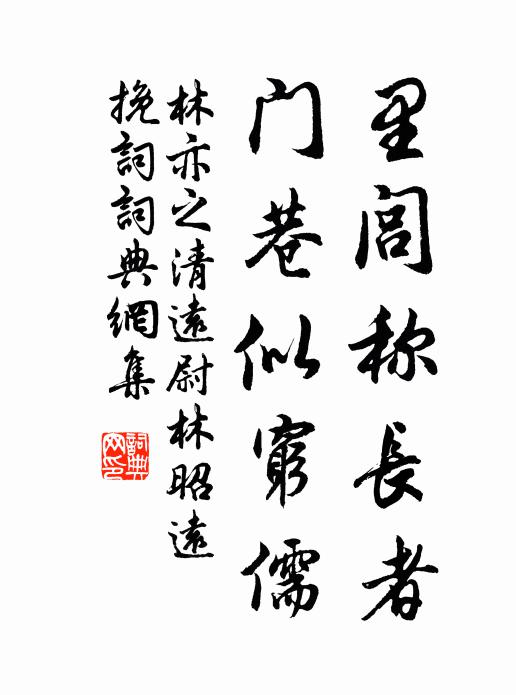 里闾称長者
門巷似窮儒
林亦之清遠尉林昭遠
挽詞詞典網集
詞典网印